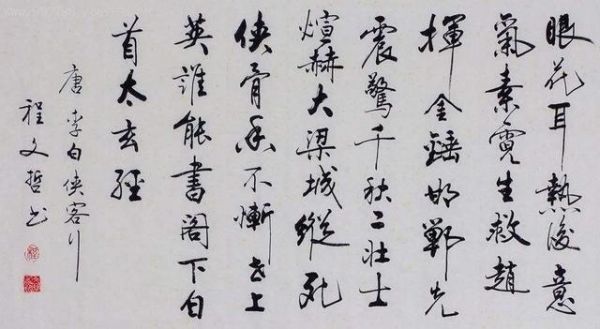 眼花耳熱後意
氣素霓生救趙
揮金鎚邯鄲先
震驚千秋二壯士
煊赫大梁城縱死
俠骨香不慚世上
英誰能書閣下白
首太玄經
唐李白俠客行
程文哲书